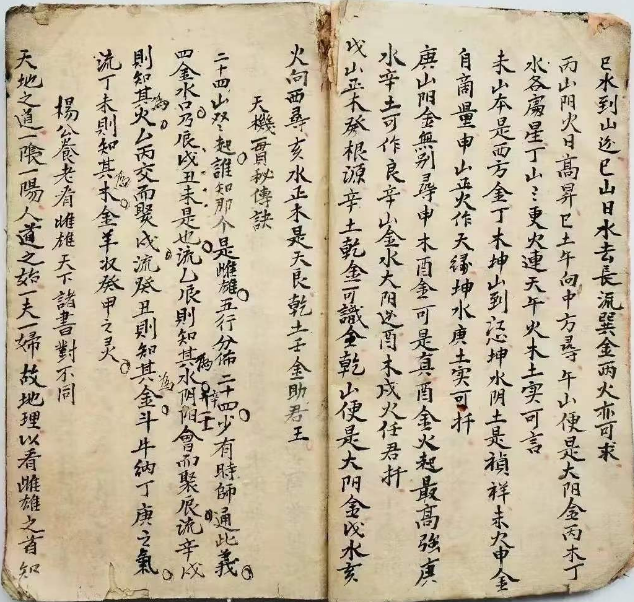 巳水到山边巳山日水去長流巽金丙火亦可求
丙山阳火日高昇巳土午向中方尋午山便是大阳金丙木丁
水各处星丁山山更火連天午火木土实可言
未山本是西方金丁木坤山到 坤水阴土是禎祥未火申金
自商量申山正火作天缘坤水庚土实可扦
庚山阳金無别尋申木酉金可是真酉金火起最高強庚
水辛土可作良辛山金水大阳逆酉木戌火任君扦
戌山正木發根源辛土乾金可識全乾山便是大阴金戌水亥
火向西尋亥水正木是天良乾土壬金助君王
天機貫秘傳訣
二十四山双双起誰知那个是雌雄五行分佈二十四少有時師通此義
四金水口乃辰戌丑未是也流乙辰則知其水阴阳會而聚辰流辛戌
則知其火乙丙交而聚戌流癸丑則知其金斗牛納丁庚之氣
流丁未則知其木金羊收癸甲之灵
楊公养老看雌雄天下諸書對不同
天地之道一陰一陽人道之始一夫一婦故地理以看雌雄之首知